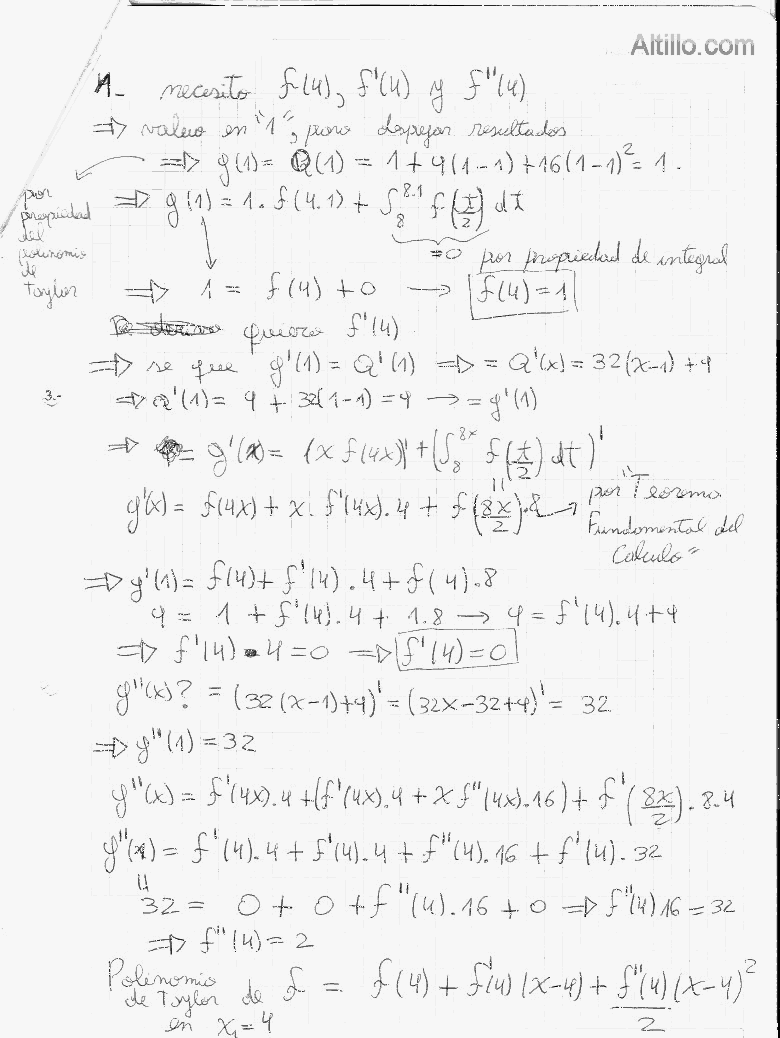 Altillo.com
1.- necesito f(4), f'(4) y f''(4)
⇒ valuo en "1", para despejar resultados
⇒ g(1) = Q(1) = 1 + 9(1-1) + 16(1-1)² = 1.
por propiedad del polinomio de Taylor
⇒ g(1) = 1. f(4.1) + ∫₈^8.1 f(t/2) dt
=0 por propiedad de integral
⇒ 1 = f(4) + 0 → f(4) = 1
quiero f'(4)
⇒ se que g'(1) = Q'(1) ⇒ = Q'(x) = 32(x-1) + 9
3.-
⇒ Q'(1) = 9 + 32(1-1) = 9 → = g'(1)
⇒ = g'(x) = (x f(4x))' + (∫₈^8x f(t/2) dt)'
g'(x) = f(4x) + x. f'(4x). 4 + f(8x/2).8 → por "Teorema
Fundamental del
Calculo"
⇒ g'(1) = f(4) + f'(4) . 4 + f(4).8
9 = 1 + f'(4). 4 + 1.8 → 9 = f'(4). 4 + 9
⇒ f'(4) . 4 = 0 ⇒ f'(4) = 0
g''(x)? = (32(x-1)+9)' = (32x-32+9)' = 32
⇒ g''(1) = 32
g''(x) = f'(4x). 4 + (f'(4x). 4 + x f''(4x). 16) + f'(8x/2). 8.4
g''(1) = f'(4). 4 + f'(4). 4 + f''(4). 16 + f'(4). 32
32 = 0 + 0 + f''(4). 16 + 0 ⇒ f''(4) 16 = 32
⇒ f''(4) = 2
Polinomio
de Taylor de f = f(4) + f'(4) (x-4) + f''(4)/2 (x-4)²
en x₁ = 4